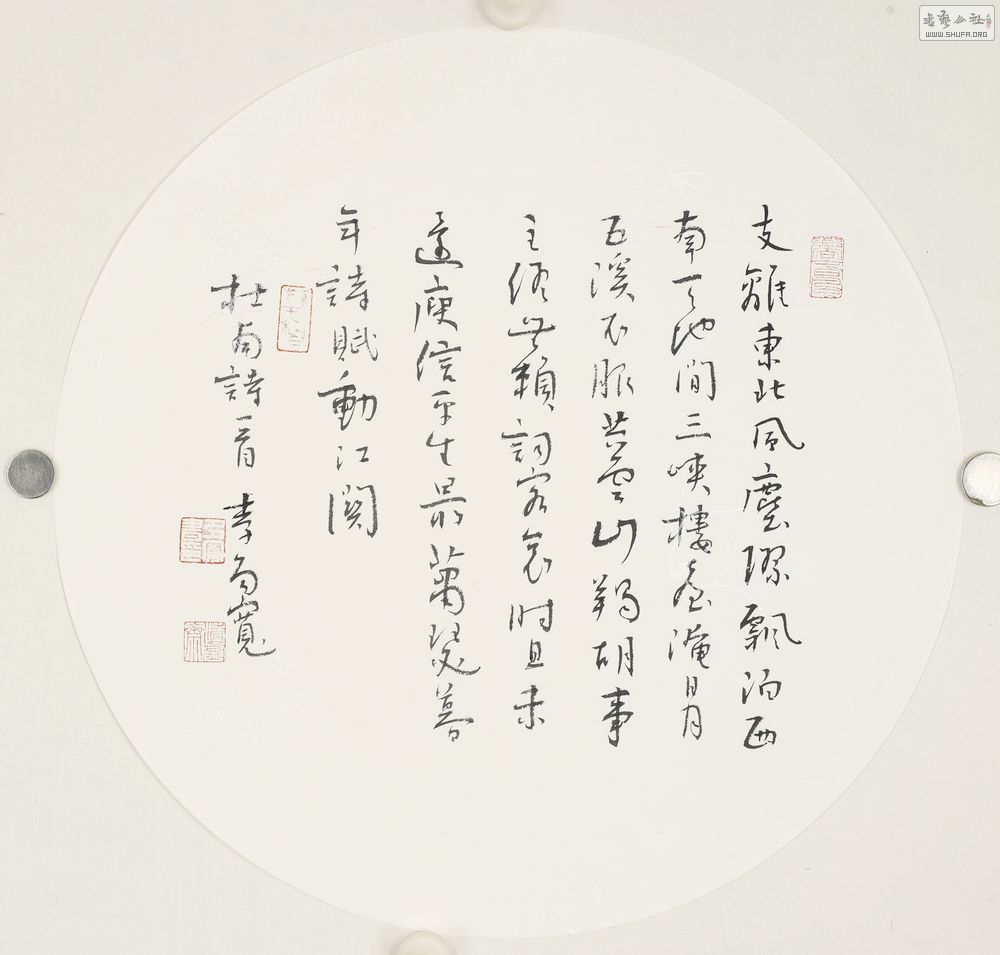 支離東北風塵際飄泊西
南天地間三峽樓臺淹日月
五溪衣服共雲山羯胡事
主終無賴詞客哀時且未
還庾信平生最蕭瑟暮
年詩賦動江關
杜甫詩一首 李寬
书艺公社
WWW.SHUFA.ORG